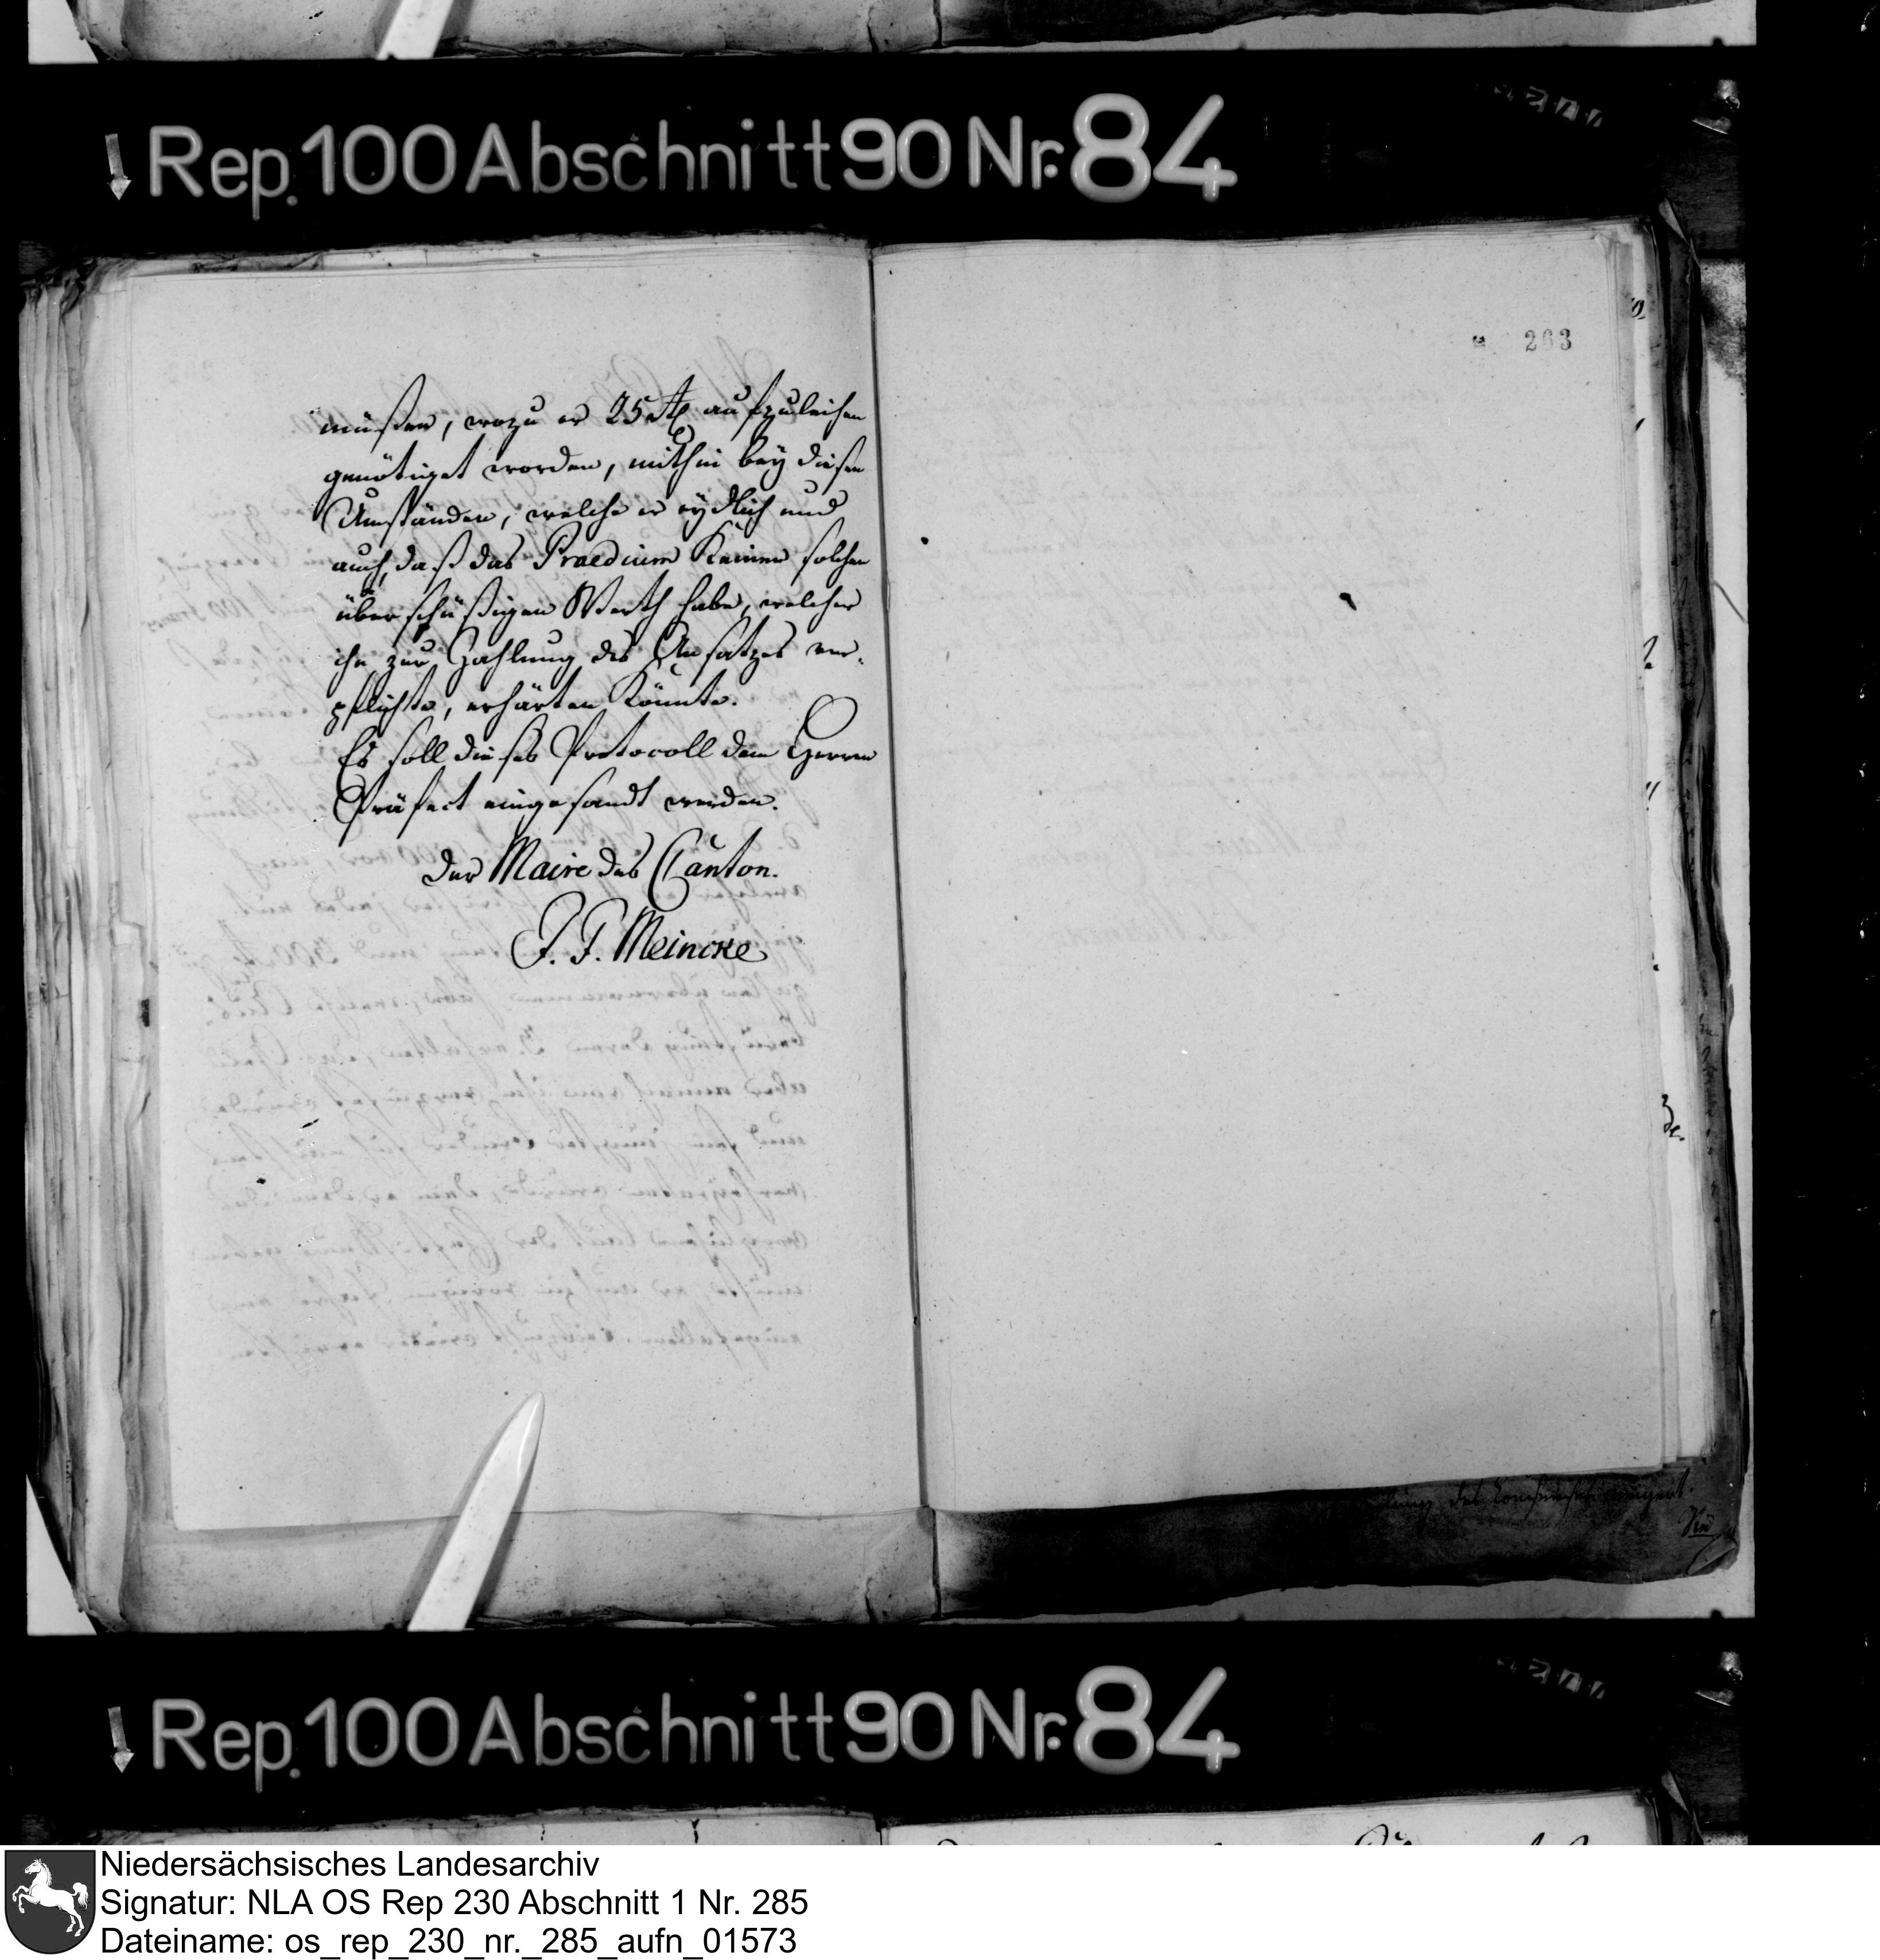 Rep. 100 Abschnitt 90 Nr. 84
263
müßen, wozu er 25 Rthlr aufzuleihen
genötiget worden, mithin bey diesen
Umständen, welche er eydlich und
auch, daß das Praedium keinen solchen
überschüßigen Werth habe, welcher
ihn zur Zahlung des Ansatzes ver-
pflichte, erhärten könnte.
Es soll dieses Protocoll dem Herren
Präfect eingesandt werden.
Der Maire des Canton.
J. F. Meincke
Rep. 100 Abschnitt 90 Nr. 84
Niedersächsisches Landesarchiv
Signatur: NLA OS Rep 230 Abschnitt 1 Nr. 285
Dateiname: os_rep_230_nr._285_aufn_01573